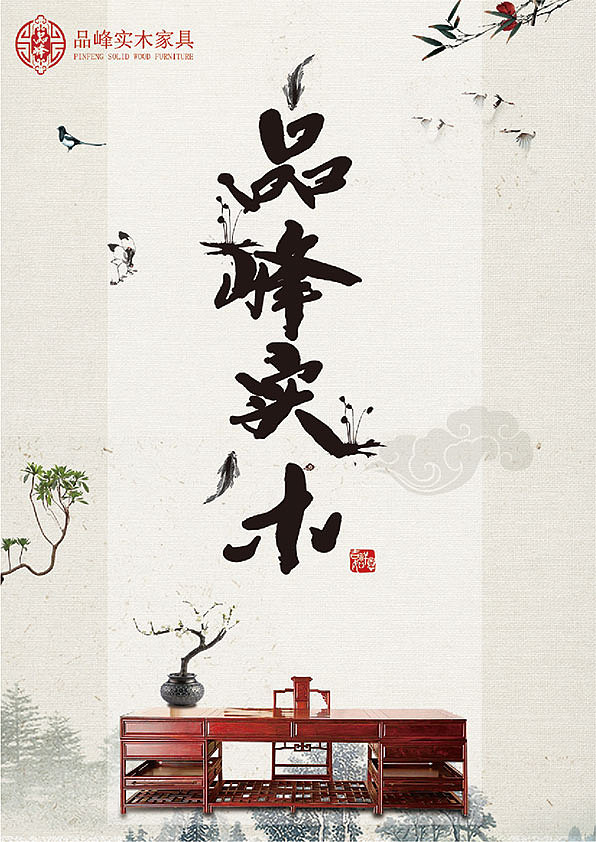 品峰实木家具
PINFENG SOLID WOOD FURNITURE
品峰
品峰实木